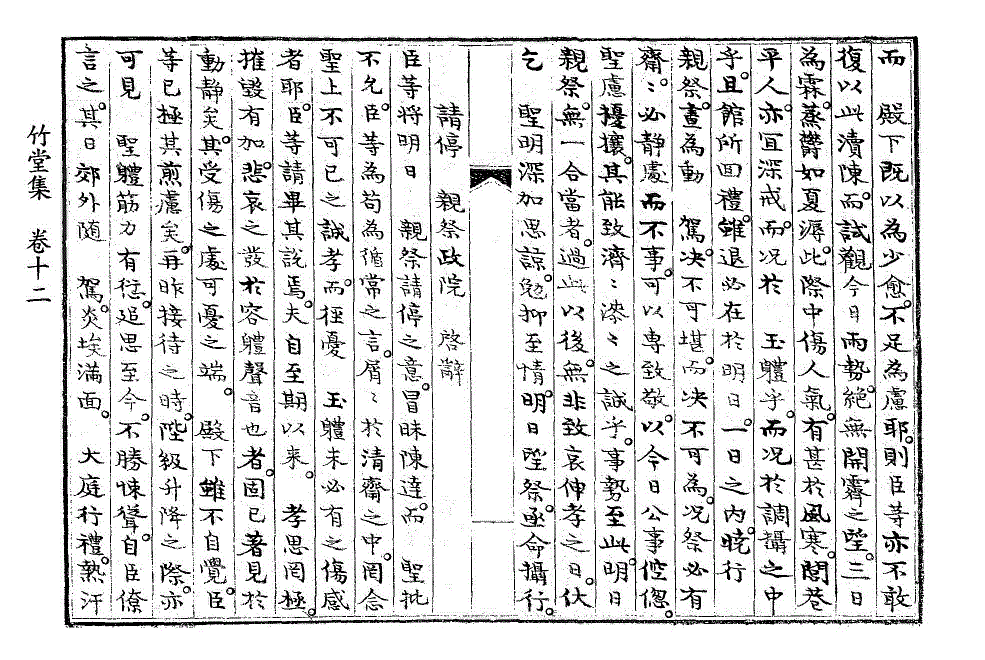 而　殿下既以為少愈。不足為慮耶。則臣等亦不敢
復以此瀆陳。而試觀今日雨勢。絶無開霽之望。三日
為霖。蒸欝如夏溽。此際中傷人氣。有甚於風寒。閭巷
平人。亦宜深戒。而况於　玉體乎。而况於調攝之中
乎。且館所回禮。雖退必在於明日。一日之内。曉行
親祭。晝為動　駕。决不可堪。而决不可為。况祭必有
齋。齋必靜處而不事。可以專致敬。以今日公事倥偬。
聖慮擾攘。其能致濟濟漆漆之誠乎。事勢至此。明日
親祭。無一合當者。過此以後。無非致哀伸孝之日。伏
乞　聖明深加思諒。勉抑至情。明日望祭。亟命攝行。
請停　親祭政院　啓辭
臣等將明日　親祭請停之意。冒昧陳達。而　聖批
不允。臣等為苟為循常之言。屑屑於清齋之中。罔念
聖上不可已之誠孝。而徑憂　玉體未必有之傷感
者耶。臣等請畢其說焉。夫自至期以来。　孝思罔極。
摧毀有加。悲哀之發於容軆聲音也者。固已著見於
動靜矣。其受傷之處可憂之端。　殿下雖不自覺。臣
等已極其煎慮矣。再昨接待之時。陞級升降之際。亦
可見　聖軆筋力有愆。追思至今。不勝悚聳。自臣僚
言之。其日郊外随　駕。炎埃滿面。　大庭行禮。熱汗
竹堂集　卷十二